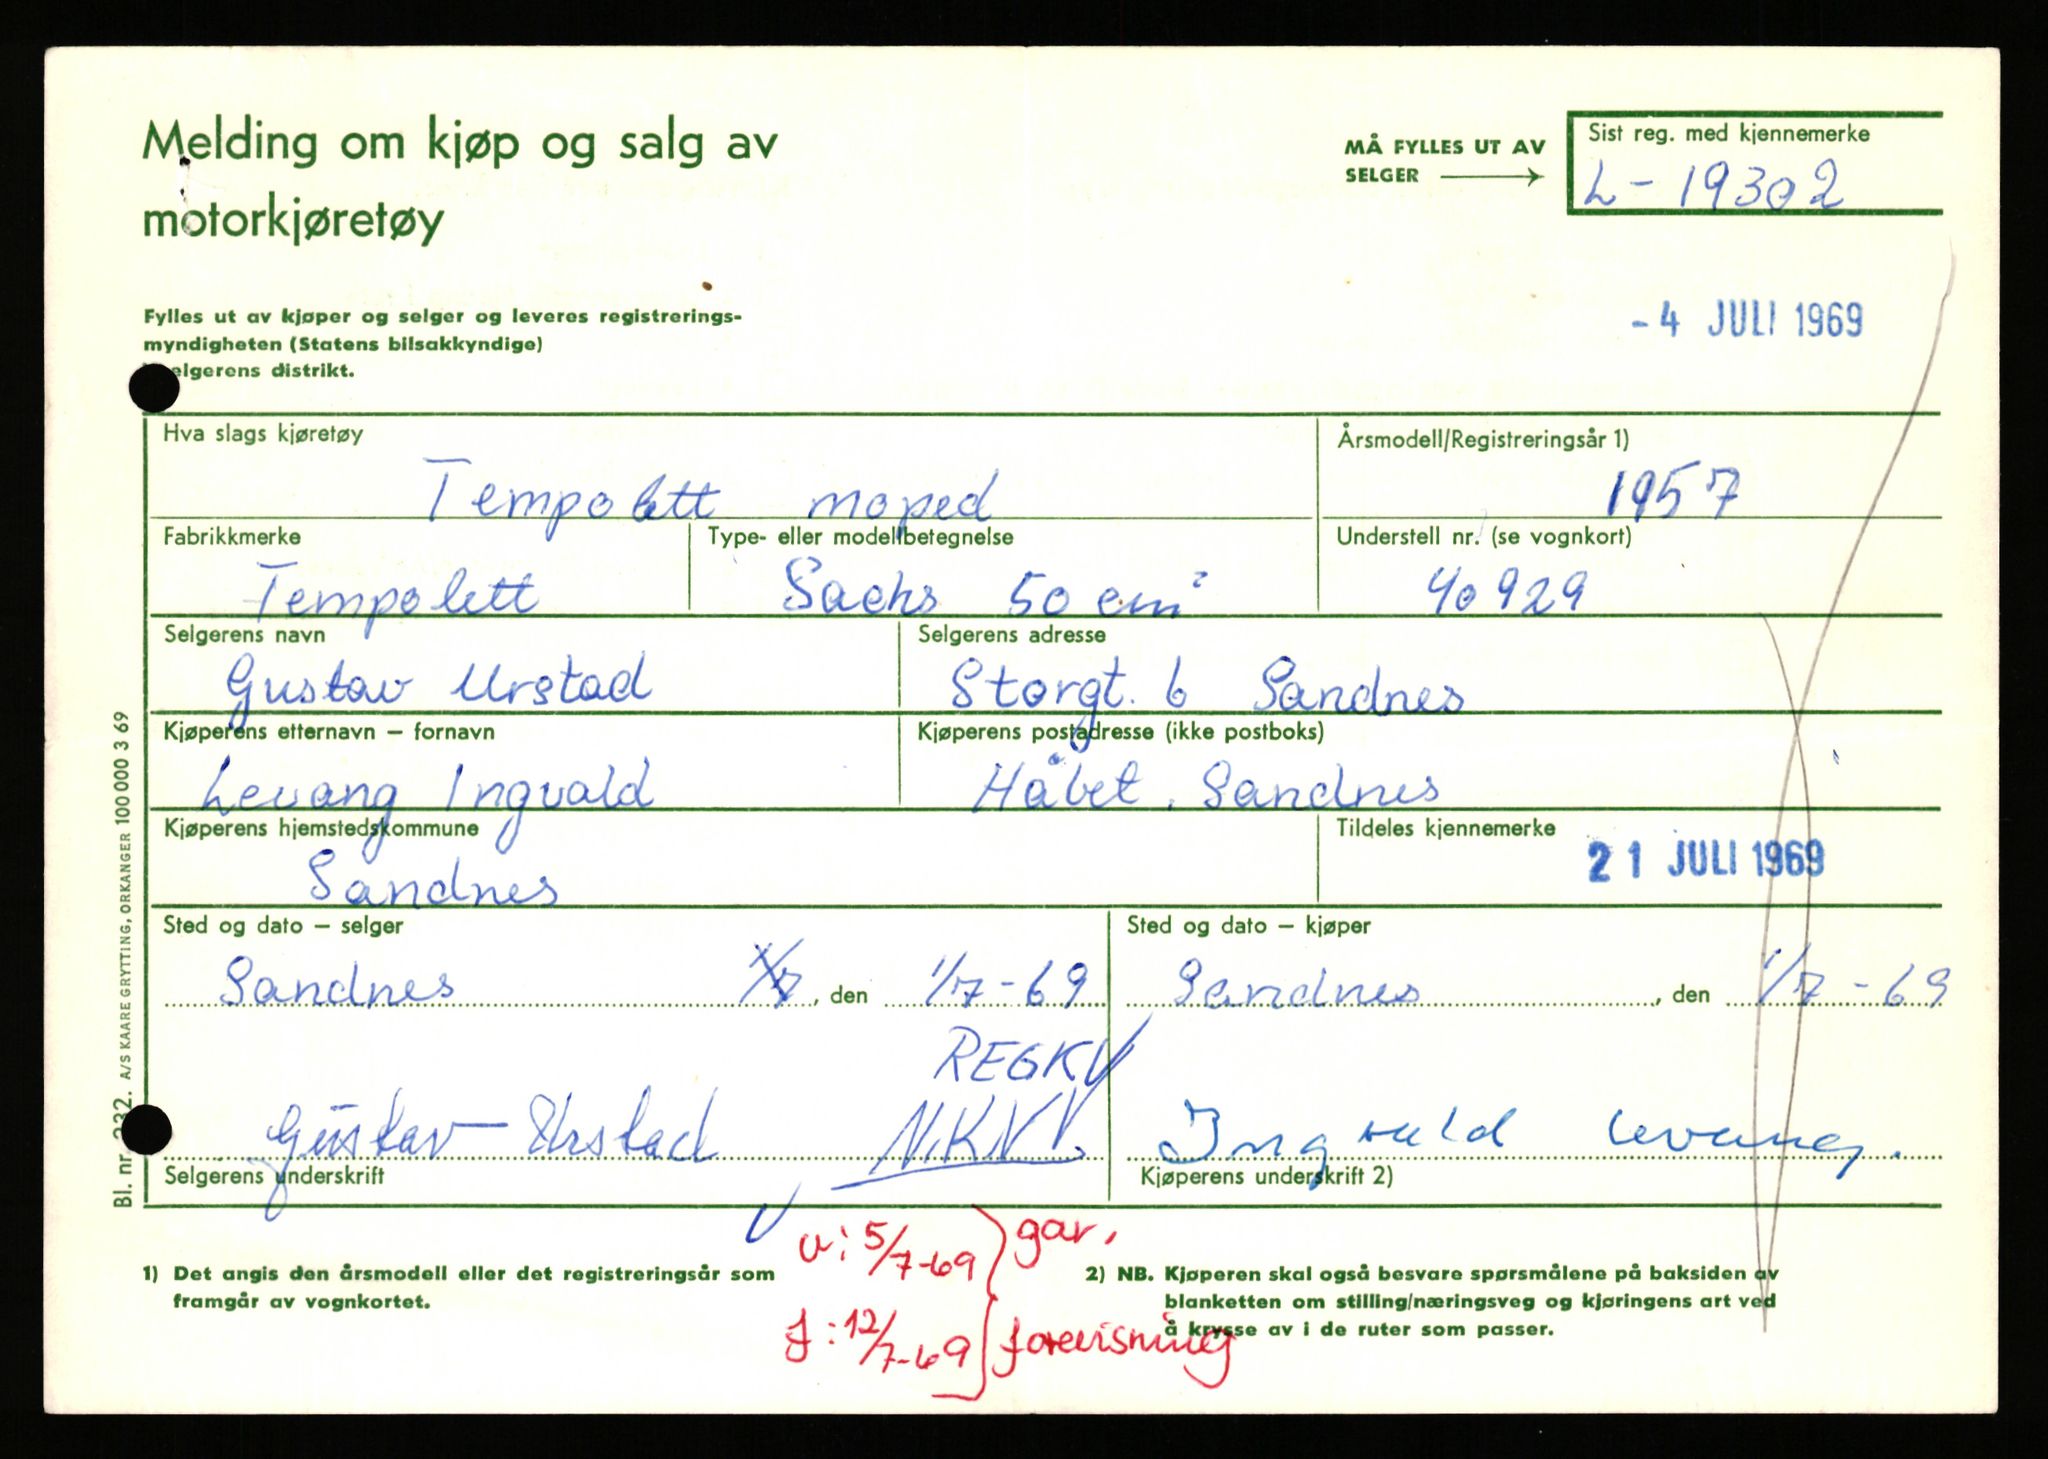 Melding om kjøp og salg av
motorkjøretøy
MÅ FYLLES UT AV
SELGER
Sist reg. med kjennemerke
L - 19302
- 4 JULI 1969
Fylles ut av kjøper og selger og leveres registrerings-
myndigheten (Statens bilsakkyndige)
elgerens distrikt.
Hva slags kjøretøy
Tempolett moped
Årsmodell/Registreringsår 1)
1957
Fabrikkmerke
Tempolett
Type- eller modellbetegnelse
Sachs 50 cm²
Understell nr. (se vognkort)
40929
Selgerens navn
Gustav Urstad
Selgerens adresse
Storgt. 6 Sandnes
Kjøperens etternavn – fornavn
Levang Ingvald
Kjøperens postadresse (ikke postboks)
Håbet, Sandnes
Kjøperens hjemstedskommune
Sandnes
Tildeles kjennemerke
21 JULI 1969
Sted og dato – selger
Sandnes, den 1/7-69
Sted og dato – kjøper
Sandnes, den 1/7-69
REGKV
N.KNV.
Gustav Urstad
Selgerens underskrift
Ingvald Levang.
Kjøperens underskrift 2)
v: 5/7-69 } gar,
f: 12/7-69 } forevisning
1) Det angis den årsmodell eller det registreringsår som
framgår av vognkortet.
2) NB. Kjøperen skal også besvare spørsmålene på baksiden av
blanketten om stilling/næringsveg og kjøringens art ved
å krysse av i de ruter som passer.
Bl. nr. 232. A/S KAARE GRYTTING, ORKANGER 100 000 3 69